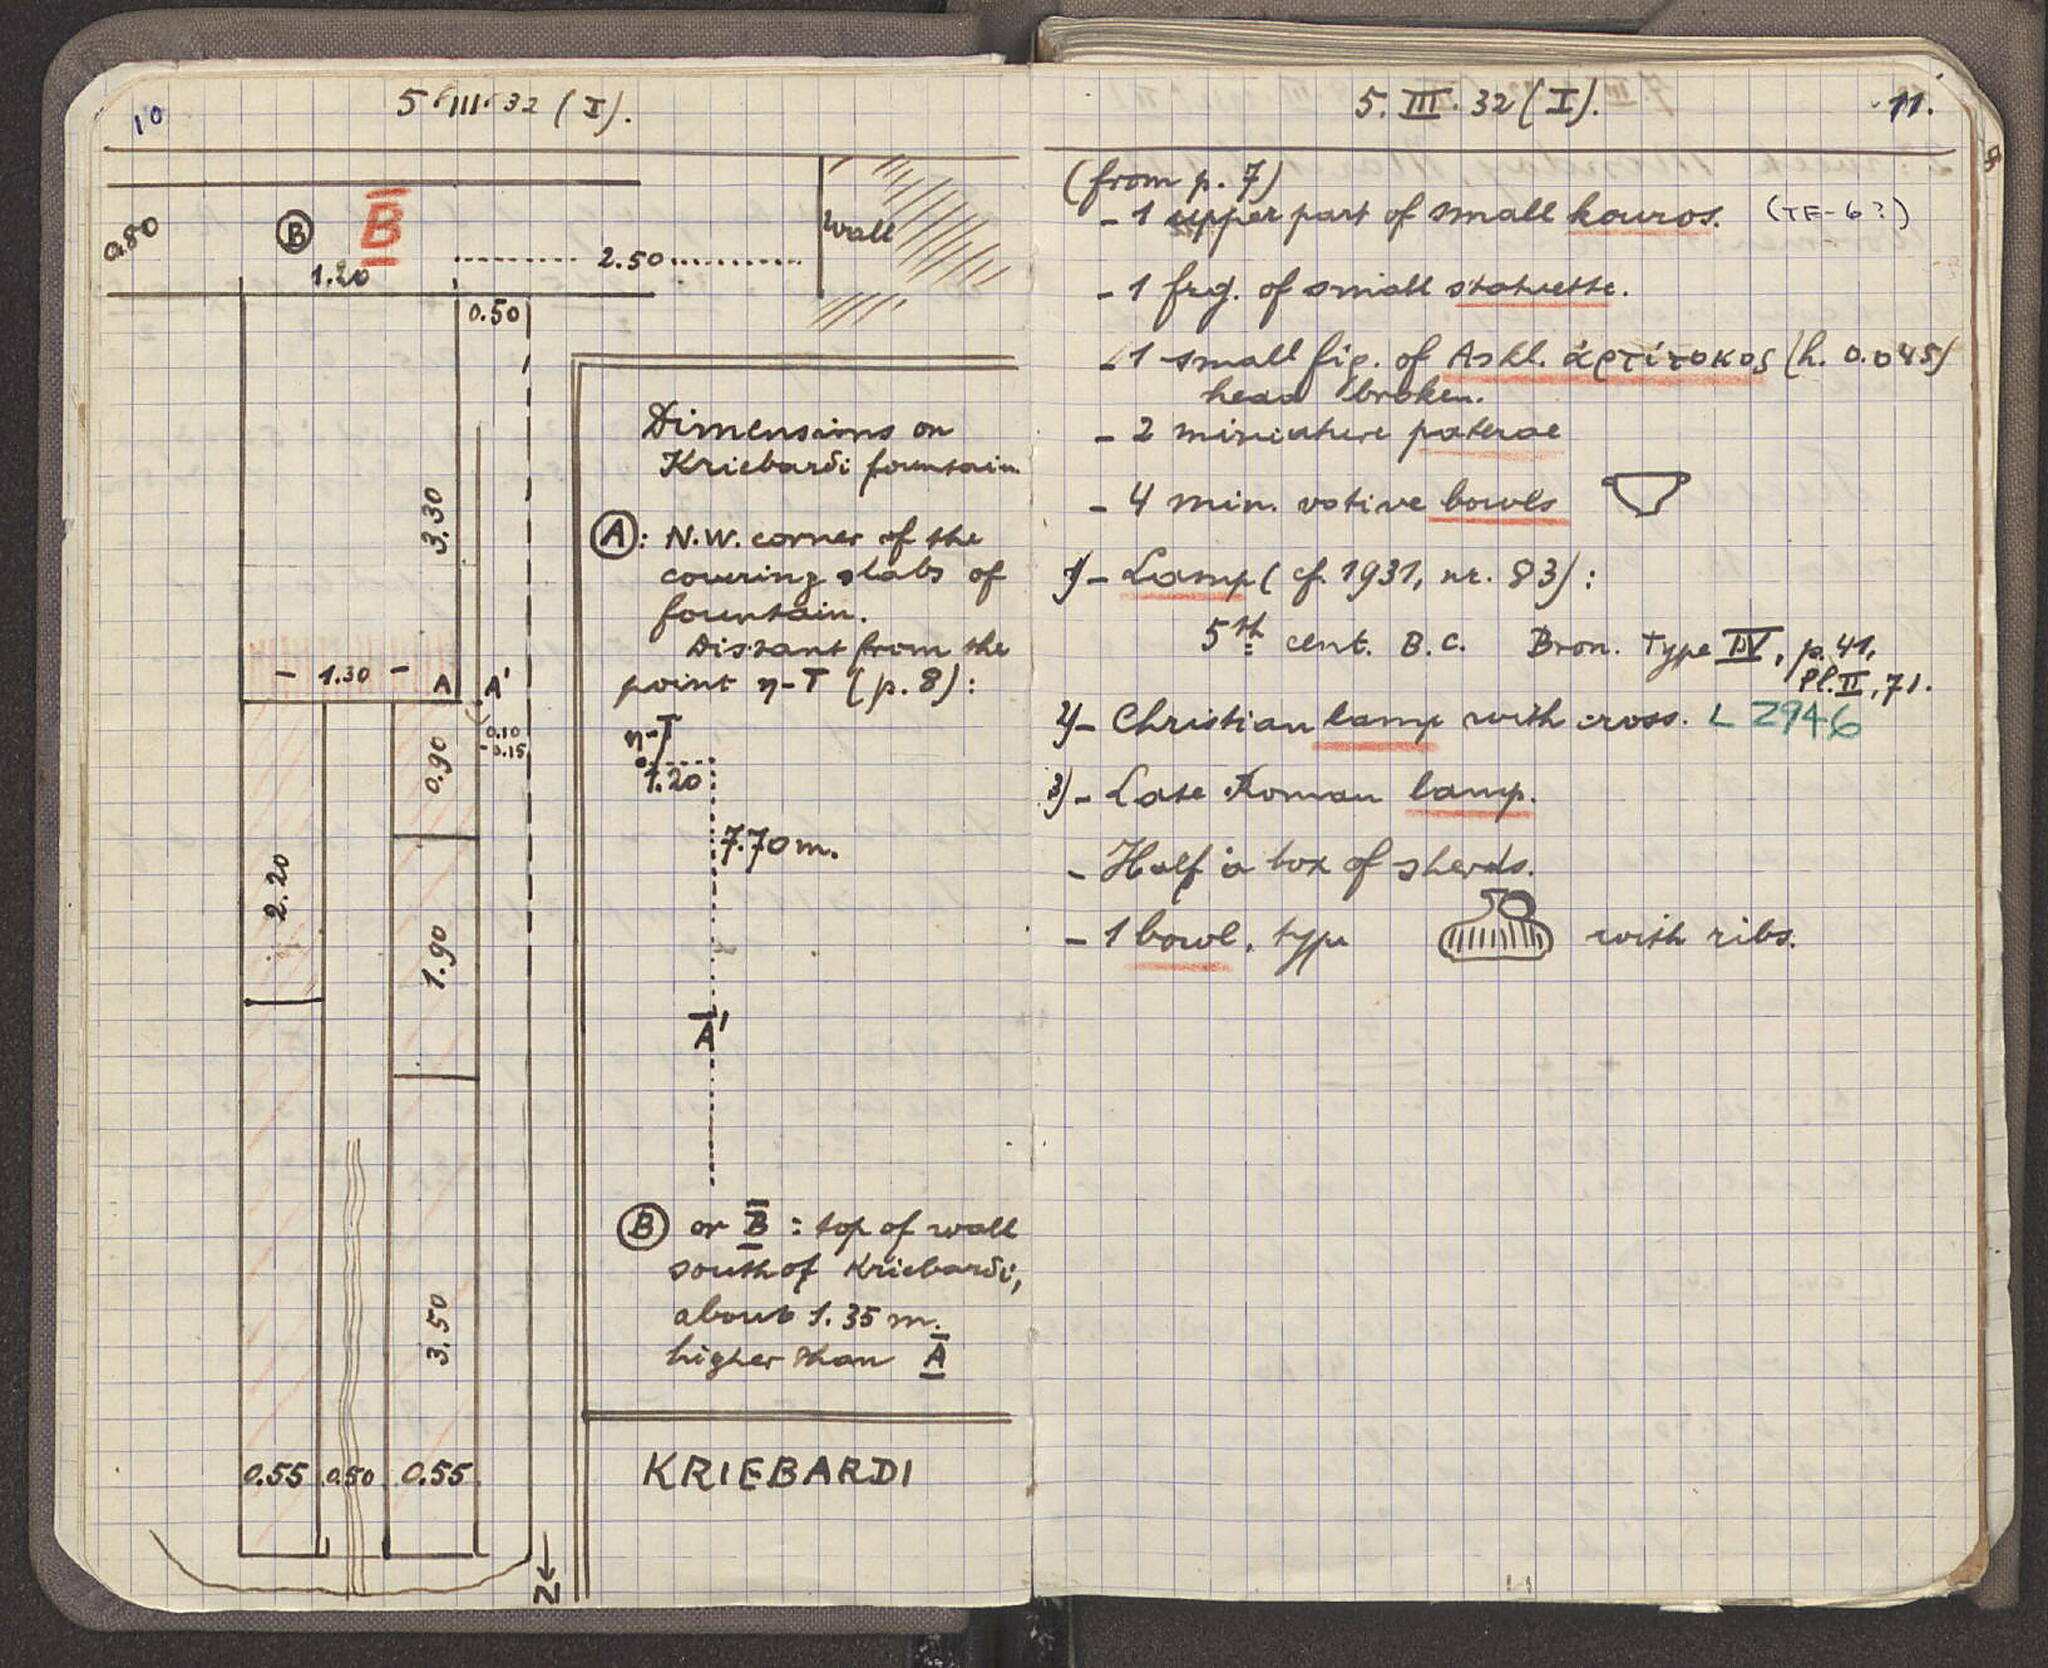 10
5.III.32 (I).
0.80
B
B
1.20
2.50
wall
0.50
3.30
- 1.30 -
A
A'
0.10
-0.15
0.90
2.20
1.90
3.50
0.55
0.50
0.55
N
Dimensions on
Kriebardi fountain.
A: N.W. corner of the
covering slabs of
fountain.
Distant from the
point η-T (p. 8):
η-T
1.20
7.70 m.
A'
B or B : top of wall
south of Kriebardi,
about 1.35 m.
higher than A
KRIEBARDI
5.III.32 (I).
11.
(from p. 7)
- 1 upper part of small kouros. (TF-6?)
- 1 frg. of small statuette.
- 1 small fig. of Askl. ἀρτίτοκος (h. 0.045)
head broken.
- 2 miniature paterae
- 4 min. votive bowls
1)- Lamp (cf. 1931, nr. 83):
5th cent. B.C. Bron. Type IV, p. 41,
Pl. II, 71.
2)- Christian lamp with cross. L 2946
3)- Late Roman lamp.
- Half a box of sherds.
- 1 bowl, type with ribs.